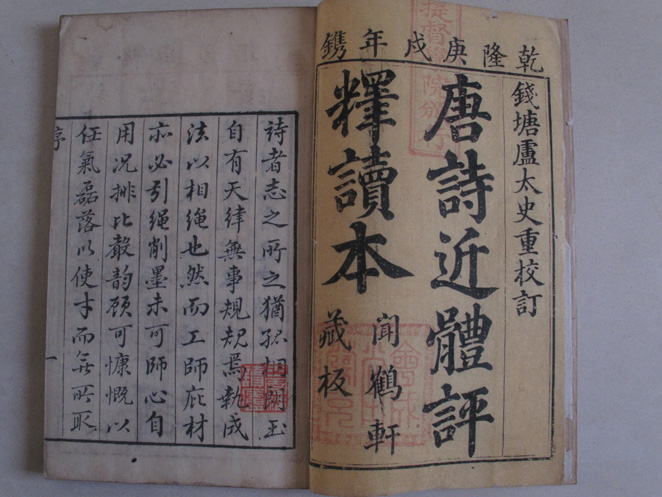 乾隆庚戌年鐫
錢塘盧太史重校訂
唐詩近體評
釋讀本
聞鶴軒
藏板
詩者志之所之猶孤桐開玉
自有天律無事規規焉執成
法以相绳也然而工師庇材
亦必引绳削墨未可師心自
用况排比聲韵顾可慷慨以
任氣磊落以使才而無所取
序
一